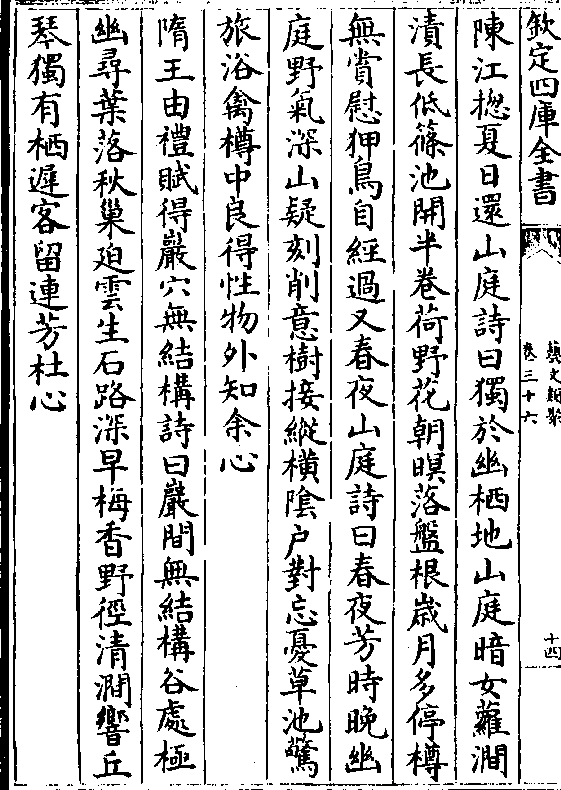 欽定四庫全書
藝文類聚
卷三十六
十四
陳江摠夏日還山庭詩曰獨於幽栖地山庭暗女蘿澗
漬長低篠池開半卷荷野花朝暝落盤根歲月多停樽
無賞慰狎鳥自經過又春夜山庭詩曰春夜芳時晚幽
庭野氣深山疑刻削意樹接縱橫陰户對忘憂草池驚
旅浴禽樽中良得性物外知余心
隋王由禮賦得巖穴無結構詩曰巖間無結構谷處極
幽尋葉落秋巢迫雲生石路深早梅香野徑清澗響丘
琴獨有栖遲客留連芳杜心